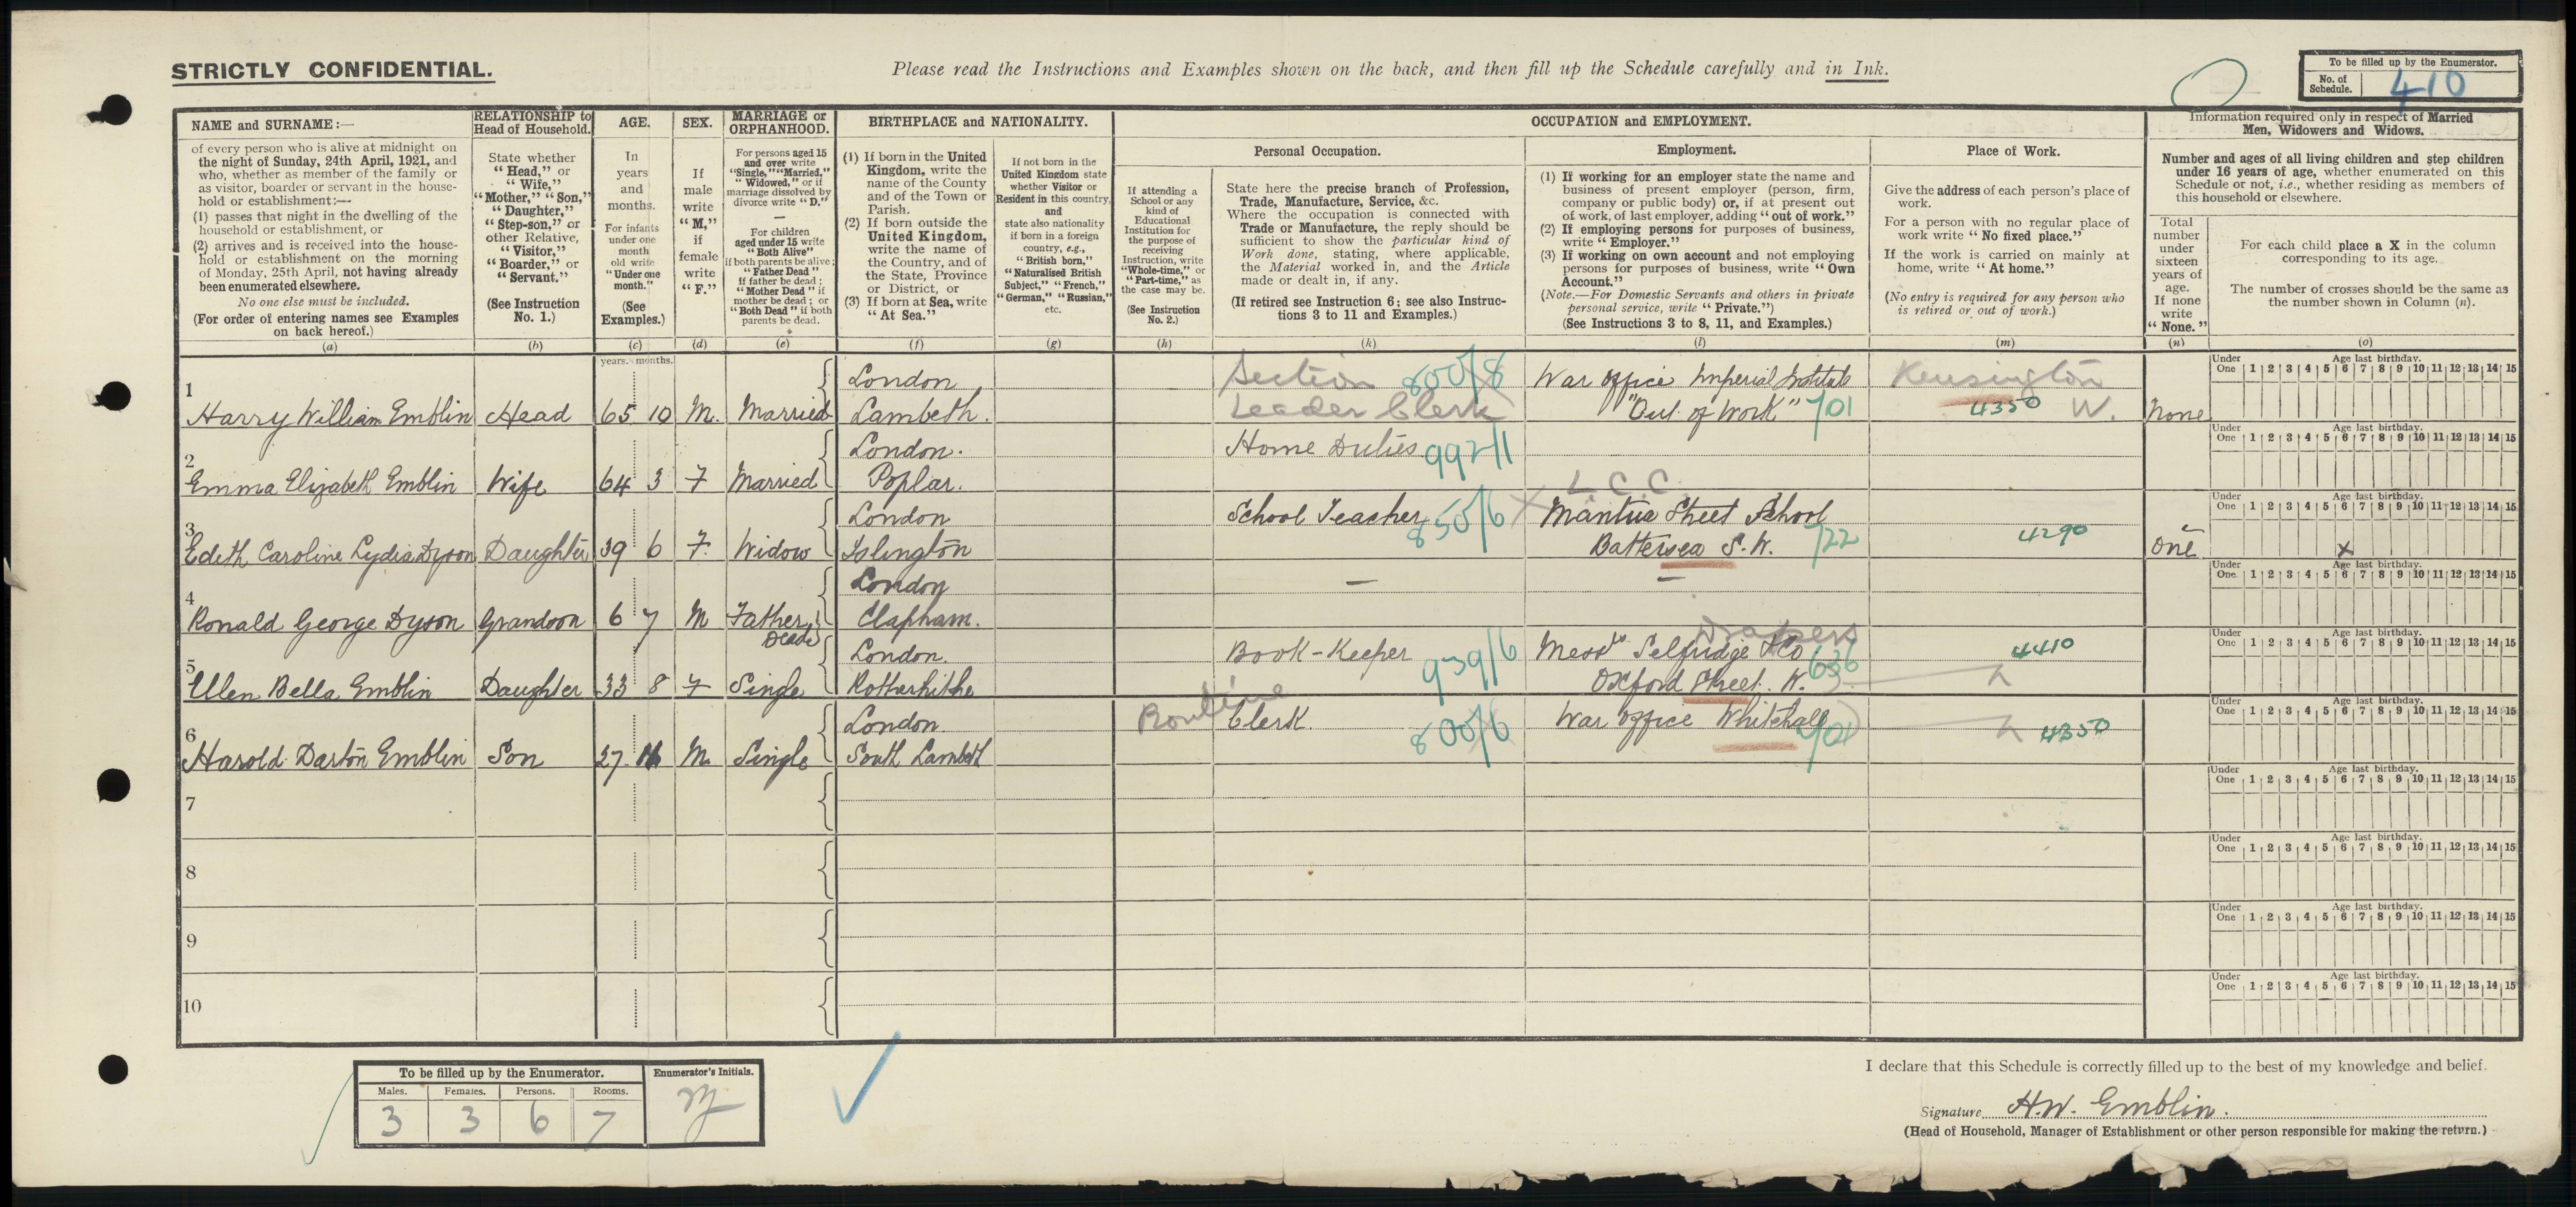 STRICTLY CONFIDENTIAL.
Please read the Instructions and Examples shown on the back, and then fill up the Schedule carefully and in Ink.
To be filled up by the Enumerator.
No. of Schedule. 410
NAME and SURNAME:—
of every person who is alive at midnight on
the night of Sunday, 24th April, 1921, and
who, whether as member of the family or
as visitor, boarder or servant in the house-
hold or establishment:—
(1) passes that night in the dwelling of the
household or establishment, or
(2) arrives and is received into the house-
hold or establishment on the morning
of Monday, 25th April, not having already
been enumerated elsewhere.
No one else must be included.
(For order of entering names see Examples
on back hereof.)
(a)
RELATIONSHIP to
Head of Household.
State whether
"Head," or
"Wife,"
"Mother," "Son,"
"Daughter,"
"Step-son," or
other Relative,
"Visitor,"
"Boarder," or
"Servant."
(See Instruction
No. 1.)
(b)
AGE.
In
years
and
months.
For infants
under one
month
old write
"Under one
month."
(See
Examples.)
(c)
SEX.
If
male
write
"M,"
if
female
write
"F."
(d)
MARRIAGE or
ORPHANHOOD.
For persons aged 15
and over write
"Single," "Married,"
"Widowed," or if
marriage dissolved by
divorce write "D."
—
For children
aged under 15 write
"Both Alive"
if both parents be alive;
"Father Dead"
if father be dead;
"Mother Dead" if
mother be dead; or
"Both Dead" if both
parents be dead.
(e)
BIRTHPLACE and NATIONALITY.
(1) If born in the United
Kingdom, write the
name of the County
and of the Town or
Parish.
(2) If born outside the
United Kingdom,
write the name of
the Country, and of
the State, Province
or District, or
(3) If born at Sea, write
"At Sea."
(f)
If not born in the
United Kingdom state
whether Visitor or
Resident in this country,
and
state also nationality
if born in a foreign
country, e.g.,
"British born,"
"Naturalised British
Subject," "French,"
"German," "Russian,"
etc.
(g)
OCCUPATION and EMPLOYMENT.
If attending a
School or any
kind of
Educational
Institution for
the purpose of
receiving
Instruction, write
"Whole-time," or
"Part-time," as
the case may be.
(See Instruction
No. 2.)
(h)
Personal Occupation.
State here the precise branch of Profession,
Trade, Manufacture, Service, &c.
Where the occupation is connected with
Trade or Manufacture, the reply should be
sufficient to show the particular kind of
Work done, stating, where applicable,
the Material worked in, and the Article
made or dealt in, if any.
(If retired see Instruction 6; see also Instruc-
tions 3 to 11 and Examples.)
(k)
Employment.
(1) If working for an employer state the name and
business of present employer (person, firm,
company or public body) or, if at present out
of work, of last employer, adding "out of work."
(2) If employing persons for purposes of business,
write "Employer."
(3) If working on own account and not employing
persons for purposes of business, write "Own
Account."
(Note.—For Domestic Servants and others in private
personal service, write "Private.")
(See Instructions 3 to 8, 11, and Examples.)
(l)
Place of Work.
Give the address of each person's place of
work.
For a person with no regular place of
work write "No fixed place."
If the work is carried on mainly at
home, write "At home."
(No entry is required for any person who
is retired or out of work.)
(m)
Information required only in respect of Married
Men, Widowers and Widows.
Number and ages of all living children and step children
under 16 years of age, whether enumerated on this
Schedule or not, i.e., whether residing as members of
this household or elsewhere.
Total
number
under
sixteen
years of
age.
If none
write
"None."
(n)
For each child place a X in the column
corresponding to its age.
The number of crosses should be the same as
the number shown in Column (n).
(o)
years. months.
Under One Age last birthday. 1 2 3 4 5 6 7 8 9 10 11 12 13 14 15
1 London Section 800/8 War Office Imperial Institute Kensington
Harry William Emblin Head 65 10 M. Married Lambeth. Leader Clerk "Out of Work" 701 4350 W. None
Under One Age last birthday. 1 2 3 4 5 6 7 8 9 10 11 12 13 14 15
2 London. Home Duties 992/1
Emma Elizabeth Emblin Wife 64 3 F Married Poplar.
Under One Age last birthday. 1 2 3 4 5 6 7 8 9 10 11 12 13 14 15
L.C.C.
3 London School Teacher 850/6 Mantua Street School
Edith Caroline Lydia Dyson Daughter 39 6 F. Widow Islington Battersea S.W. 722 4290 One X
Under One Age last birthday. 1 2 3 4 5 6 7 8 9 10 11 12 13 14 15
4 London — —
Ronald George Dyson Grandson 6 7 M Father Dead Clapham.
Under One Age last birthday. 1 2 3 4 5 6 7 8 9 10 11 12 13 14 15
Drapers
5 London. Book-Keeper 939/6 Messrs Selfridge & Co 636 4410
Ellen Bella Emblin Daughter 33 8 F Single Rotherhithe Oxford Street. W.
Under One Age last birthday. 1 2 3 4 5 6 7 8 9 10 11 12 13 14 15
6 London. Routine Clerk. 800/6 War Office Whitehall 701 4350
Harold Darton Emblin Son 27 M. Single South Lambeth
Under One Age last birthday. 1 2 3 4 5 6 7 8 9 10 11 12 13 14 15
7
Under One Age last birthday. 1 2 3 4 5 6 7 8 9 10 11 12 13 14 15
8
Under One Age last birthday. 1 2 3 4 5 6 7 8 9 10 11 12 13 14 15
9
Under One Age last birthday. 1 2 3 4 5 6 7 8 9 10 11 12 13 14 15
10
To be filled up by the Enumerator. Enumerator's Initials.
Males. Females. Persons. Rooms.
3 3 6 7
I declare that this Schedule is correctly filled up to the best of my knowledge and belief.
Signature H.W. Emblin.
(Head of Household, Manager of Establishment or other person responsible for making the return.)